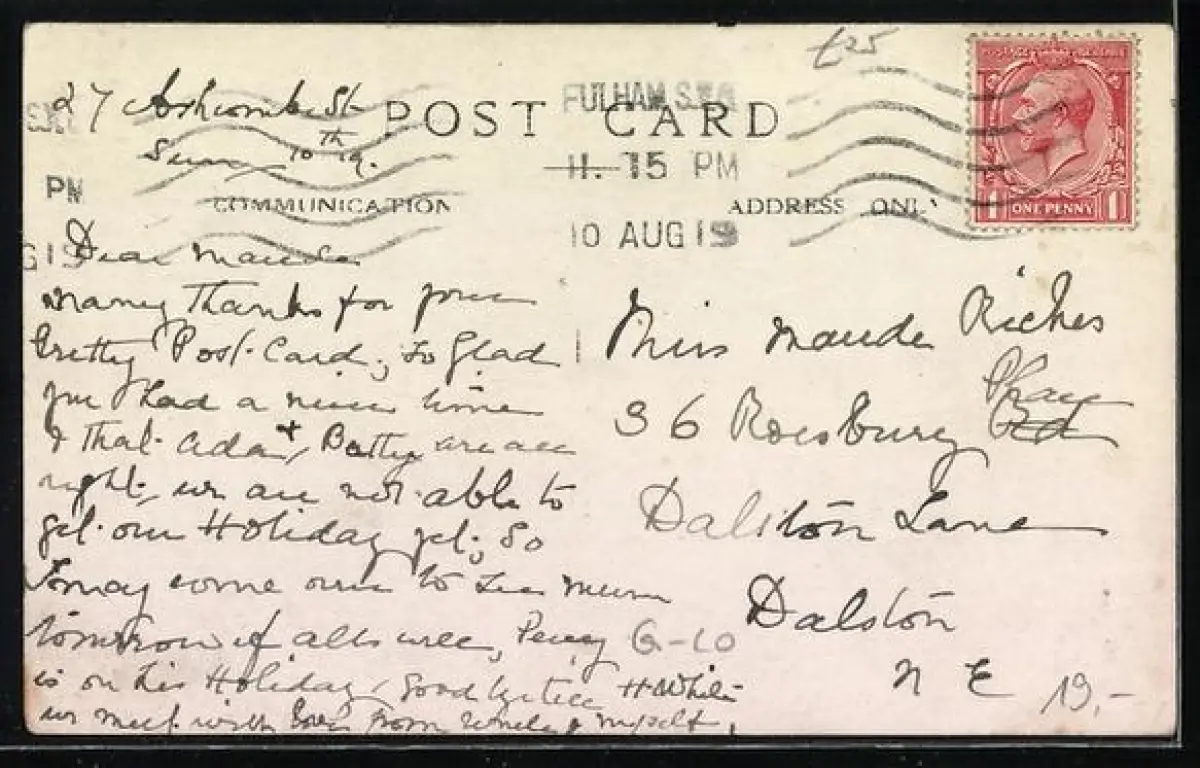 £25
27 Ashcombe St
Sun 10th 19.
POST CARD
FULHAM S.W.6
11. 15 PM
10 AUG 19
PM
G 19
COMMUNICATION
ADDRESS ONLY
POSTAGE REVENUE
1 ONE PENNY 1
Dear Maude
many Thanks for your
Pretty Post-Card, so Glad
you Had a nice time
& that Ada & Batty are all
right, we are not able to
get our Holiday yet, So
I may come over to see mum
tomorrow if alls well, Percy
is on his Holiday, Goodbye till
we meet with love from Uncle & myself,
H White
Miss Maude Riches
36 Roesbury Rd
Place
Dalston Lane
Dalston
N E
G-10
19,-